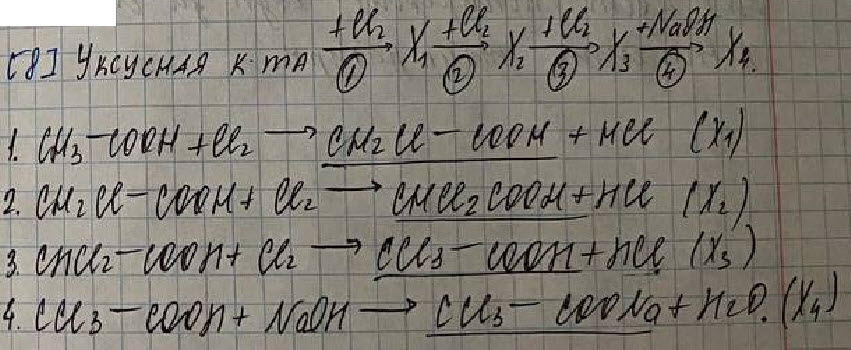 [8] Уксусная к-та +Cl₂ → ① X₁ +Cl₂ → ② X₂ +Cl₂ → ③ X₃ +NaOH → ④ X₄.
1. CH₃-COOH + Cl₂ → CH₂Cl-COOH + HCl (X₁)
2. CH₂Cl-COOH + Cl₂ → CHCl₂COOH + HCl (X₂)
3. CHCl₂-COOH + Cl₂ → CCl₃-COOH + HCl (X₃)
4. CCl₃-COOH + NaOH → CCl₃-COONa + H₂O. (X₄)